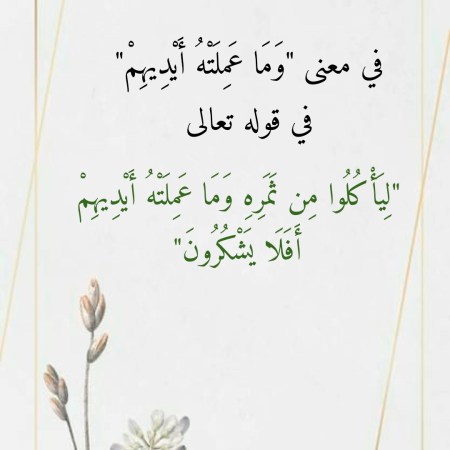 في معنى "وَمَا عَمِلَتْهُ أَيْدِيهِمْ"
في قوله تعالى
"لِيَأْكُلُوا مِن ثَمَرِهِ وَمَا عَمِلَتْهُ أَيْدِيهِمْ
أَفَلَا يَشْكُرُونَ"